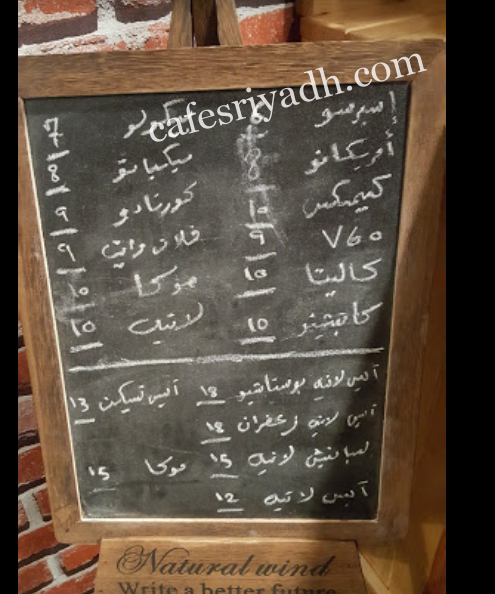 cafesriyadh.com
إسبرسو 6
أمريكانو 8
كيمكس 10
V60 9
كاليتا 10
كابتشينو 10
7
ميكياتو 8
كورتادو 9
فلات وايت 9
موكا 10
لاتيه 10
آيس لاتيه بوستاشيو 18
آيس لاتيه زعفران 18
سبانش لاتيه 15
آيس لاتيه 12
آيس 13
موكا 15
Natural wind
Write a better future